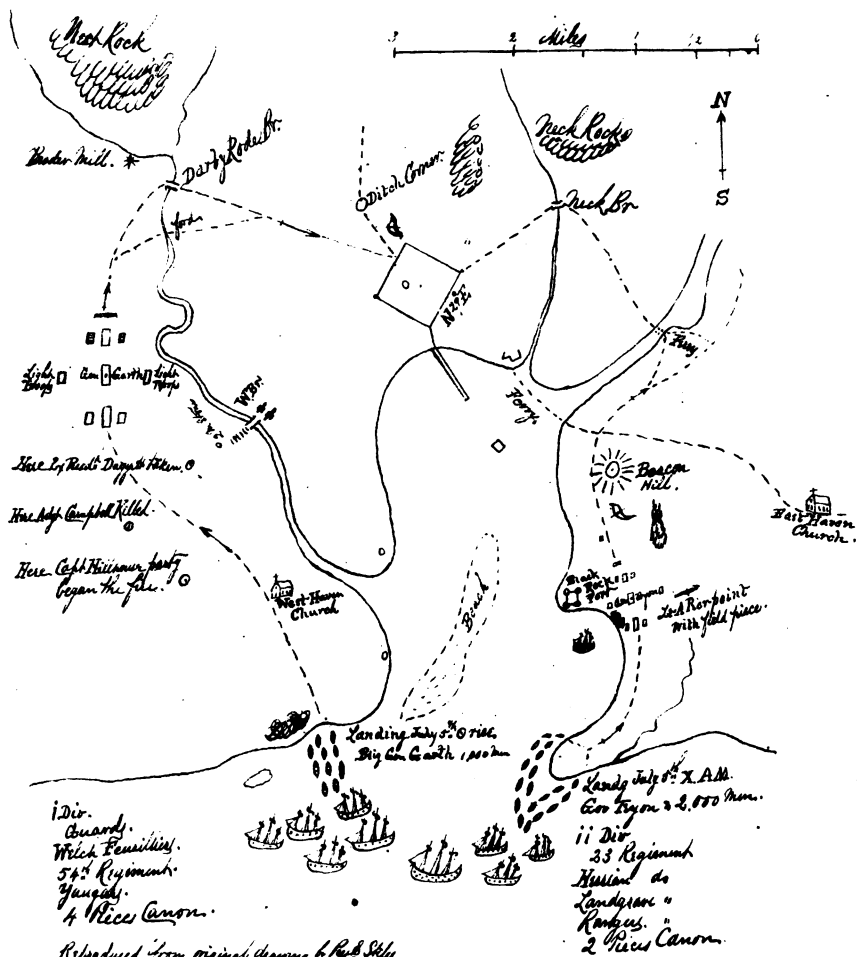 Neck Rock
3 2 Miles 1 1/2 0
N
S
Neck Rock
Powder Mill.
Darby Rode Br.
Ditch Corner.
Neck Br
ford
Ferry
Light
Troops
Gen Garth
Light
Troops
W. Br.
Ferry
Beacon
Hill.
East Haven
Church.
Here Adgt Campbell Killed.
Here Capt Hillhouse party
began the fire.
West Haven
Church
Beach
Black
Rock
Fort
with field piece.
Landing July 5th rise
Brig Gen Garth 1,000 Men
Landg July 5th X. A.M.
Gov Tryon 2,000 Men.
i Div.
Guards.
Welch Feusiliers.
54th Regiment.
Yaugars.
4 Pieces Canon.
ii Div
23 Regiment
Hessian do
Landgrave "
Rangers. "
2 Pieces Canon.
Reproduced from original drawing by Stiles